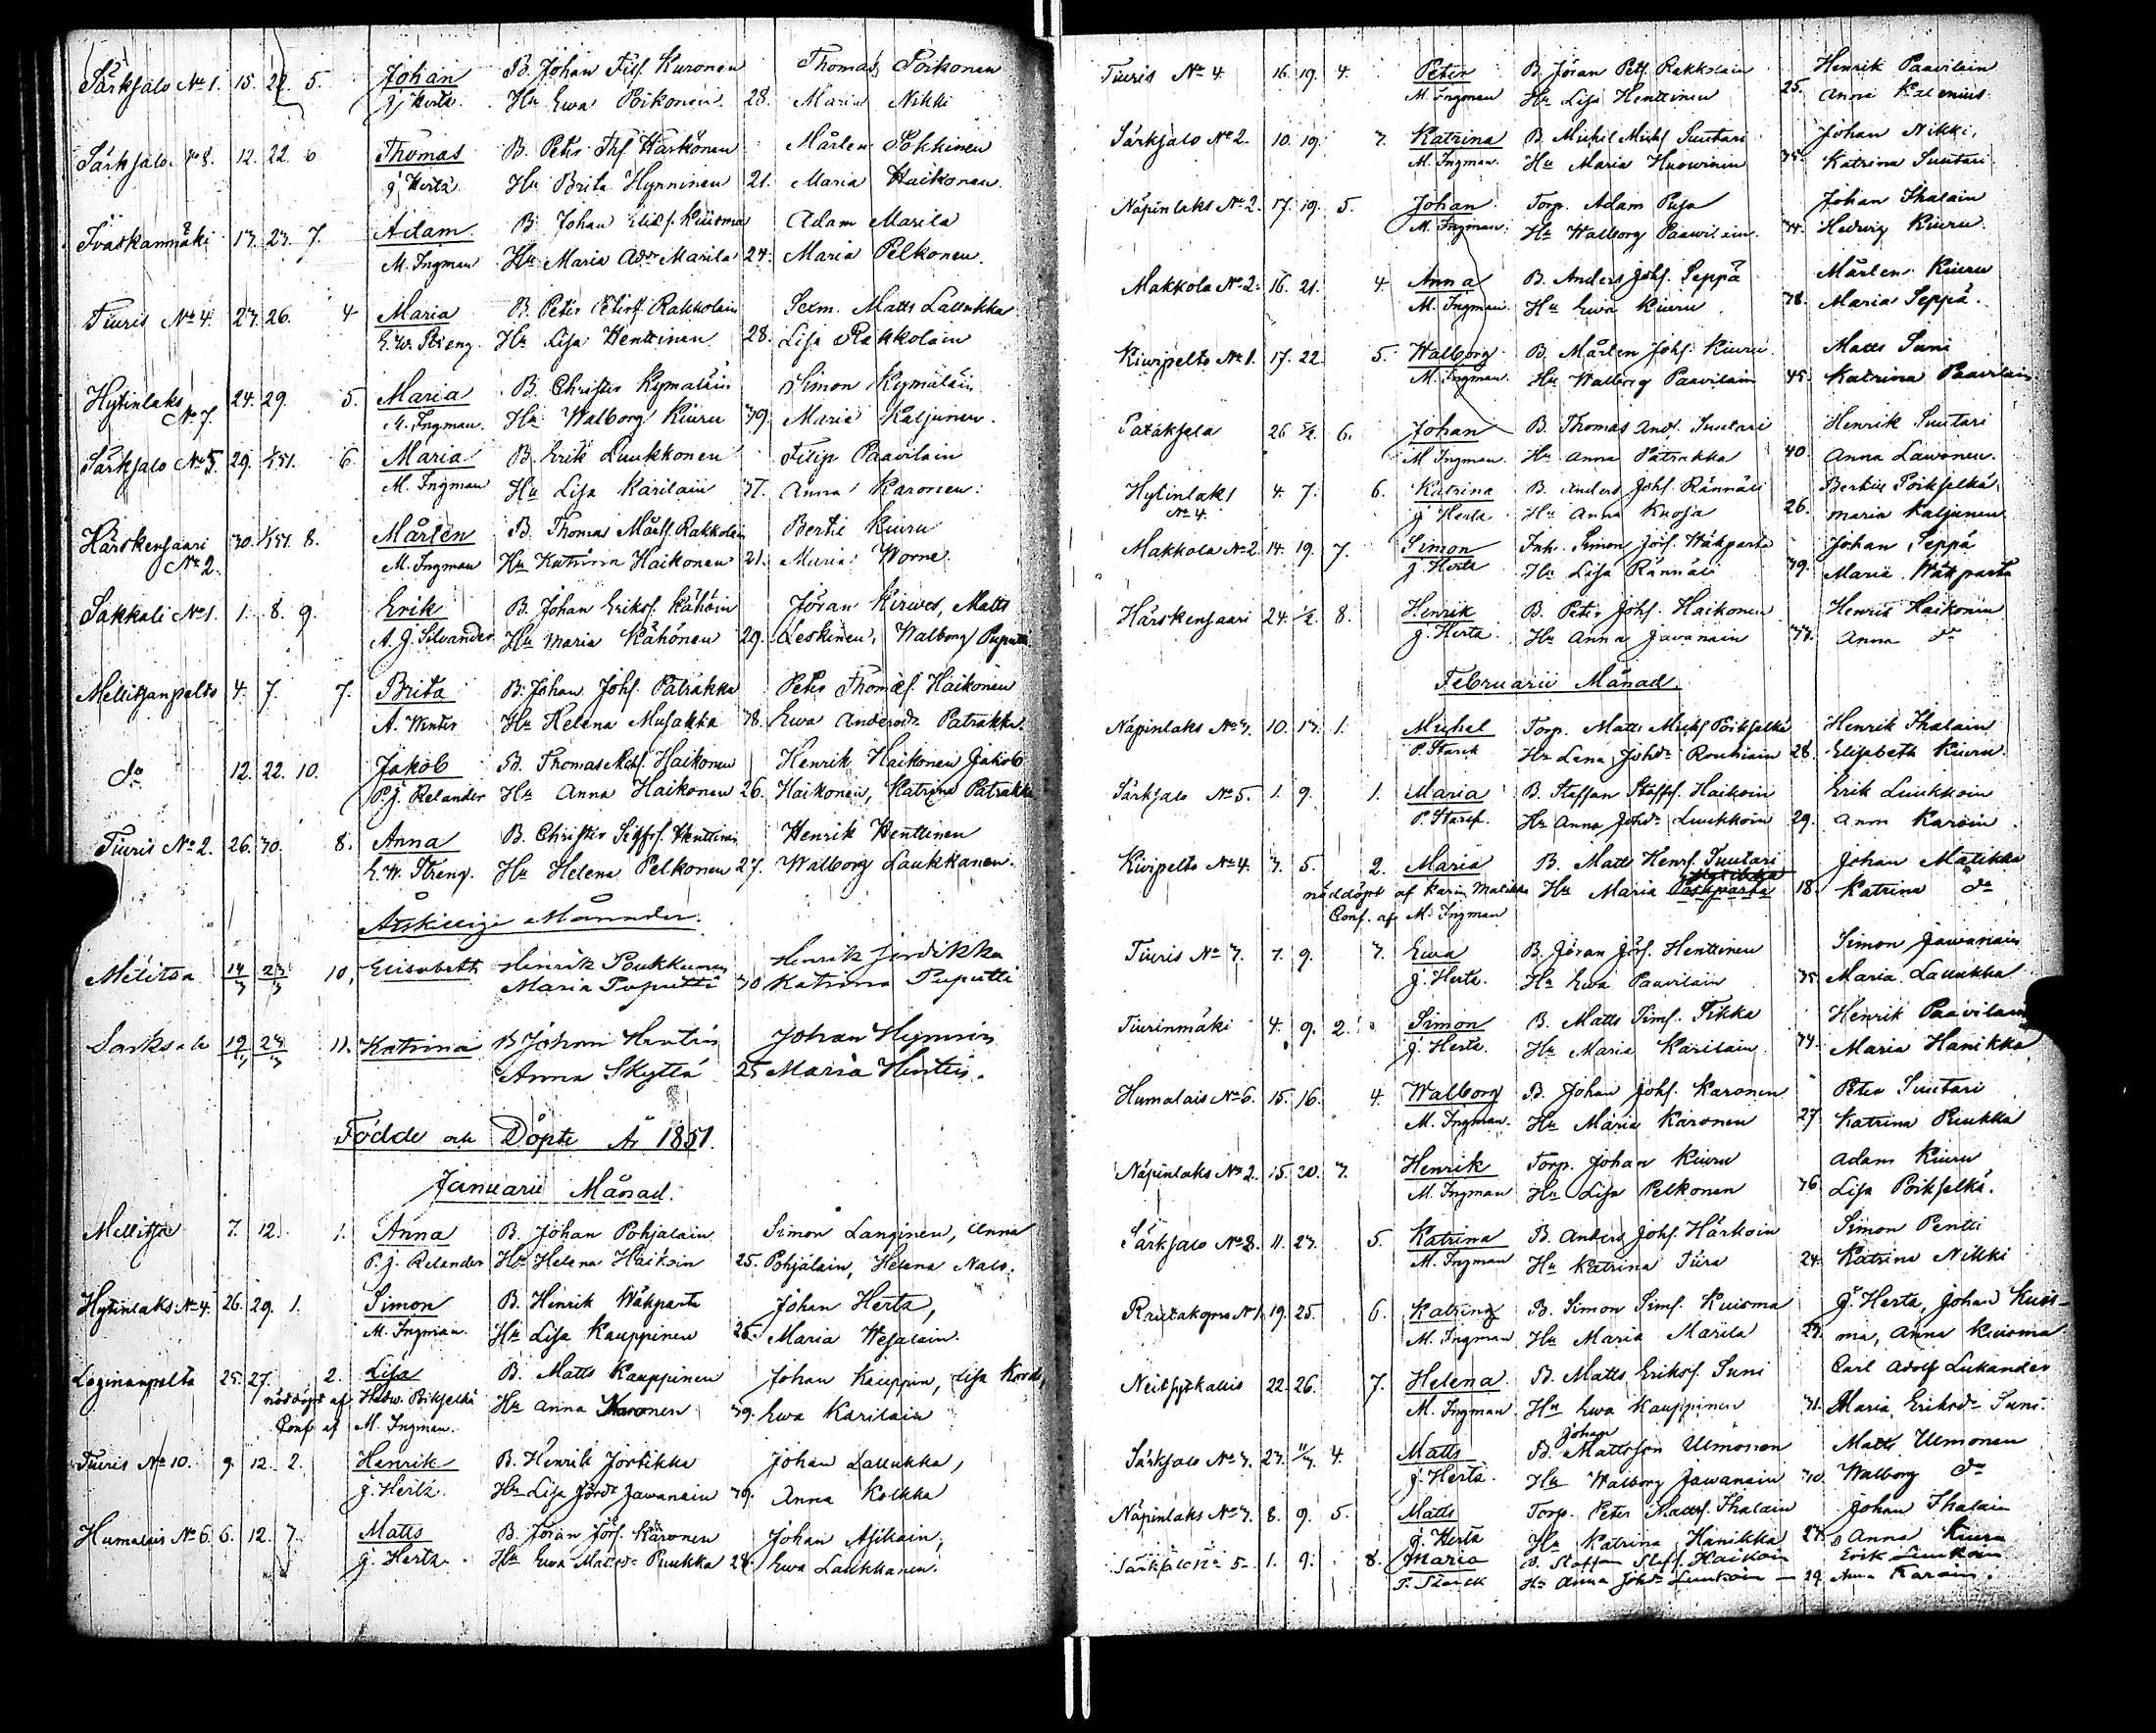 Särksalo No 1. 15. 22. 5. Johan B. Johan Filf. Kuronen Thomas Poikonen
J. Herta. Hu Ewa Poikonen 28. Maria Nikki
Särksalo No 8. 12. 22. 6 Thomas B. Peter Thf. Härkönen Mårten Sokkinen
J. Herta Hu Brita Hynninen 21. Maria Haikonen.
13. 23. 7. Adam B. Johan Eliæf. Kuisma Adam Marila
M. Ingman Hu Maria Addr Marila 24. Maria Pelkonen.
Tiuris No 4. 23. 26. 4 Maria B. Peter Petersf. Rakkolain Matts Laukka
E. W. Streng. Hu Lisa Henttinen 28. Lisa Rakkolain
Hytinlaks 24. 29. 5. Maria B. Christer Kymäläin Simon Kymäläin
No 7. M. Ingman. Hu Walborg Kiuru 39. Maria Kaljunen.
Särksalo No 5. 29. 1/1 51. 6 Maria B. Erik Luukkonen Filip Paavilain
M. Ingman Hu Lisa Karilain 37. Anna Karonen.
Härskensaari 30. 1/1 51. 8. Mårten B. Thomas Mårtf. Rakkolain Bertil Kiuru
No 2. M. Ingman Hu Katrina Haikonen 21. Maria Worne.
Sakkali No 1. 1. 8. 9. Erik B. Johan Eriksf. Kähöin Jöran Kirwes, Matts
A. J. Silvander Hu Maria Kähönen 29. Leskinen, Walborg Puputti
Mellitsanpelto 4. 7. 7. Brita B. Johan Johf. Patrakka Peter Thomæf. Haikonen
A. Winter Hu Helena Musakka 38. Ewa Andersdr Patrakka.
do 12. 22. 10. Jakob B. Thomas Haikonen Henrik Haikonen Jakob
P. J. Relander Hu Anna Haikonen 26. Haikonen, Katrina Patrakka
Tiuris No 2. 26. 30. 8. Anna B. Christer Sigfrf. Henttinen Henrik Henttinen
E. W. Streng. Hu Helena Pelkonen 27. Walborg Laukkanen.
Åtskillige Månader.
Melitsa 14/3 23/3 10, Elisabeth Henrik Poukkunen Henrik Jordikka
Maria Puputti 30 Katrina Puputti
Särksalo 19/3 23/3 11. Katrina B Johan Hentin Johan Hynnin
Anna Skyttä 25 Maria Hentin.
Födde och Döpte År 1851.
Januarii Månad.
Mellitsä 7. 12. 1. Anna B. Johan Pohjalain Simon Langinen, Anna
P. J. Relander Hu Helena Haikoin 25. Pohjalain, Helena Nalo.
Hytinlaks No 4. 26. 29. 1. Simon B. Henrik Wäkparta Johan Herta,
M. Ingman. Hu Lisa Kauppinen 26. Maria Wesalain.
Loginanpelto 25. 27. 2. Lisa B. Matts Kauppinen Johan Kauppin, Lisa Kord,
nöddöpt af Hedw. Poikselkä Hu Anna Karonen 39. Ewa Karilain
Conf af M. Ingman.
Tiuris No 10. 9. 12. 2. Henrik B. Henrik Jortikka Johan Laukka,
J. Herta. Hu Lisa Jördr Jawanain 39. Anna Kolkka
Humalais No 6. 6. 12. 3. Matts B. Jöran Jörf. Karonen Johan Asikain,
J. Herta. Hu Ewa Mattsdr Puukka 28. Ewa Laukkanen.
Tiuris No 4. 16. 19. 4. Peter B. Jöran Petf. Rakkolain Henrik Paavilain
M. Ingman Hu Lisa Henttinen 25. Anna
Särksalo No 2. 10. 19. 3. Katrina B. Michel Michf Suutari Johan Nikki,
M. Ingman. Hu Maria Huowinen 35. Katrina Suutari.
Näpinlaks No 2. 17. 19. 5. Johan Torp. Adam Pusa Johan Ihalain
M. Ingman. Hu Walborg Paawilain. 34. Hedwig Kiuru.
Makkola No 2. 16. 21. 4. Anna B. Anders Johf. Seppä Mårten Kiuru
M. Ingman. Hu Ewa Kiuru 38. Maria Seppä.
Kiwipelto No 1. 17. 22. 5. Walborg B. Mårten Johf. Kiuru Matts Suni
M. Ingman. Hu Walborg Paavilain 45. Katrina Paavilain.
Pataksala 26 5/2. 6. Johan B. Thomas Andf. Suutari Henrik Suutari
M Ingman. Hu Anna Patrakka 40. Anna Lawonen.
Hytinlaks 4. 7. 6. Katrina B. Anders Johf. Rännäli Bertil Poikselkä,
No 4. J Herta Hu Anna Kuosa 26. Maria Kaljunen
Makkola No 2. 14. 19. 7. Simon Inh. Simon Jörf. Wäkparta Johan Seppä
J. Herta Hu Lisa Rännäli 39. Maria Wäkparta
Härskensaari 24. 1/2. 8. Henrik B. Peter Johf. Haikonen Henrik Haikonen
J. Herta. Hu Anna Jawanain 33. Anna do
Februarii Månad.
Näpinlaks No 3. 10. 13. 1. Michel Torp. Matts Michf Poikselkä Henrik Ihalain
P. Starck Hu Lena Johdr Rouhiain 28. Elisabeth Kiuru.
Särksalo No 5. 1. 9. 1. Maria B. Staffan Staffsf. Haikoin Erik Luukkoin
P. Starck. Hu Anna Johdr Luukkoin 29. Anna Karoin.
Kiwipelto No 4. 3. 5. 2. Maria B. Matts Henrf. Suutari Johan Matikka
nöddöpt af Karin Matikka Hu Maria Matikka 18. Katrina do
Conf. af M. Ingman
Tiuris No 3. 7. 9. 3. Ewa B. Jöran Jörf. Henttinen Simon Jawanain
J. Herta. Hu Ewa Paavilain 35. Maria Laukka
Tiurinmäki 4. 9. 2. Simon B. Matts Simf. Tikka Henrik Paavilain
J. Herta. Hu Maria Karilain 34. Maria Hanikka
Humalais No 6. 15. 16. 4. Walborg B. Johan Johf. Karonen Peter Suutari
M. Ingman. Hu Maria Karonen 27 Katrina Puukka
Näpinlaks No 2. 15. 20. 3. Henrik Torp. Johan Kiuru Adam Kiuru
M. Ingman Hu Lisa Pelkonen 36 Lisa Poikselkä.
Särksalo No 8. 11. 23. 5. Katrina B. Anders Johf. Härkoin Simon Pentti
M. Ingman Hu Katrina Tiira 24. Katrina Nikki
No 1. 19. 25. 6. Katrina B. Simon Simf. Kuisma J. Herta, Johan Kuis-
M. Ingman Hu Maria Marila 23. ma, Anna Kuisma
Neitsytkallis 22. 26. 7. Helena B. Matts Eriksf. Suni Carl Adolf Lukander
M. Ingman Hu Ewa Kauppinen 31. Maria Eriksdr Suni.
Johan
Särksalo No 3. 23. 11/3. 4. Matts B. Mattsson Ulmonen Matts Ulmonen
J. Herta. Hu Walborg Jawanain 30. Walborg do
Näpinlaks No 3. 8. 9. 5. Matts Torp. Peter Mattsf. Ihalain Johan Ihalain
J. Herta Hu Katrina Hanikka 27. Anna Kiuru
Särksalo No 5. 1. 9. 8. Maria B. Staffan Staff. Haikoin Erik Luukoin
P. Starck Hu Anna Johdr Luukoin – 29. Anna Karoin.